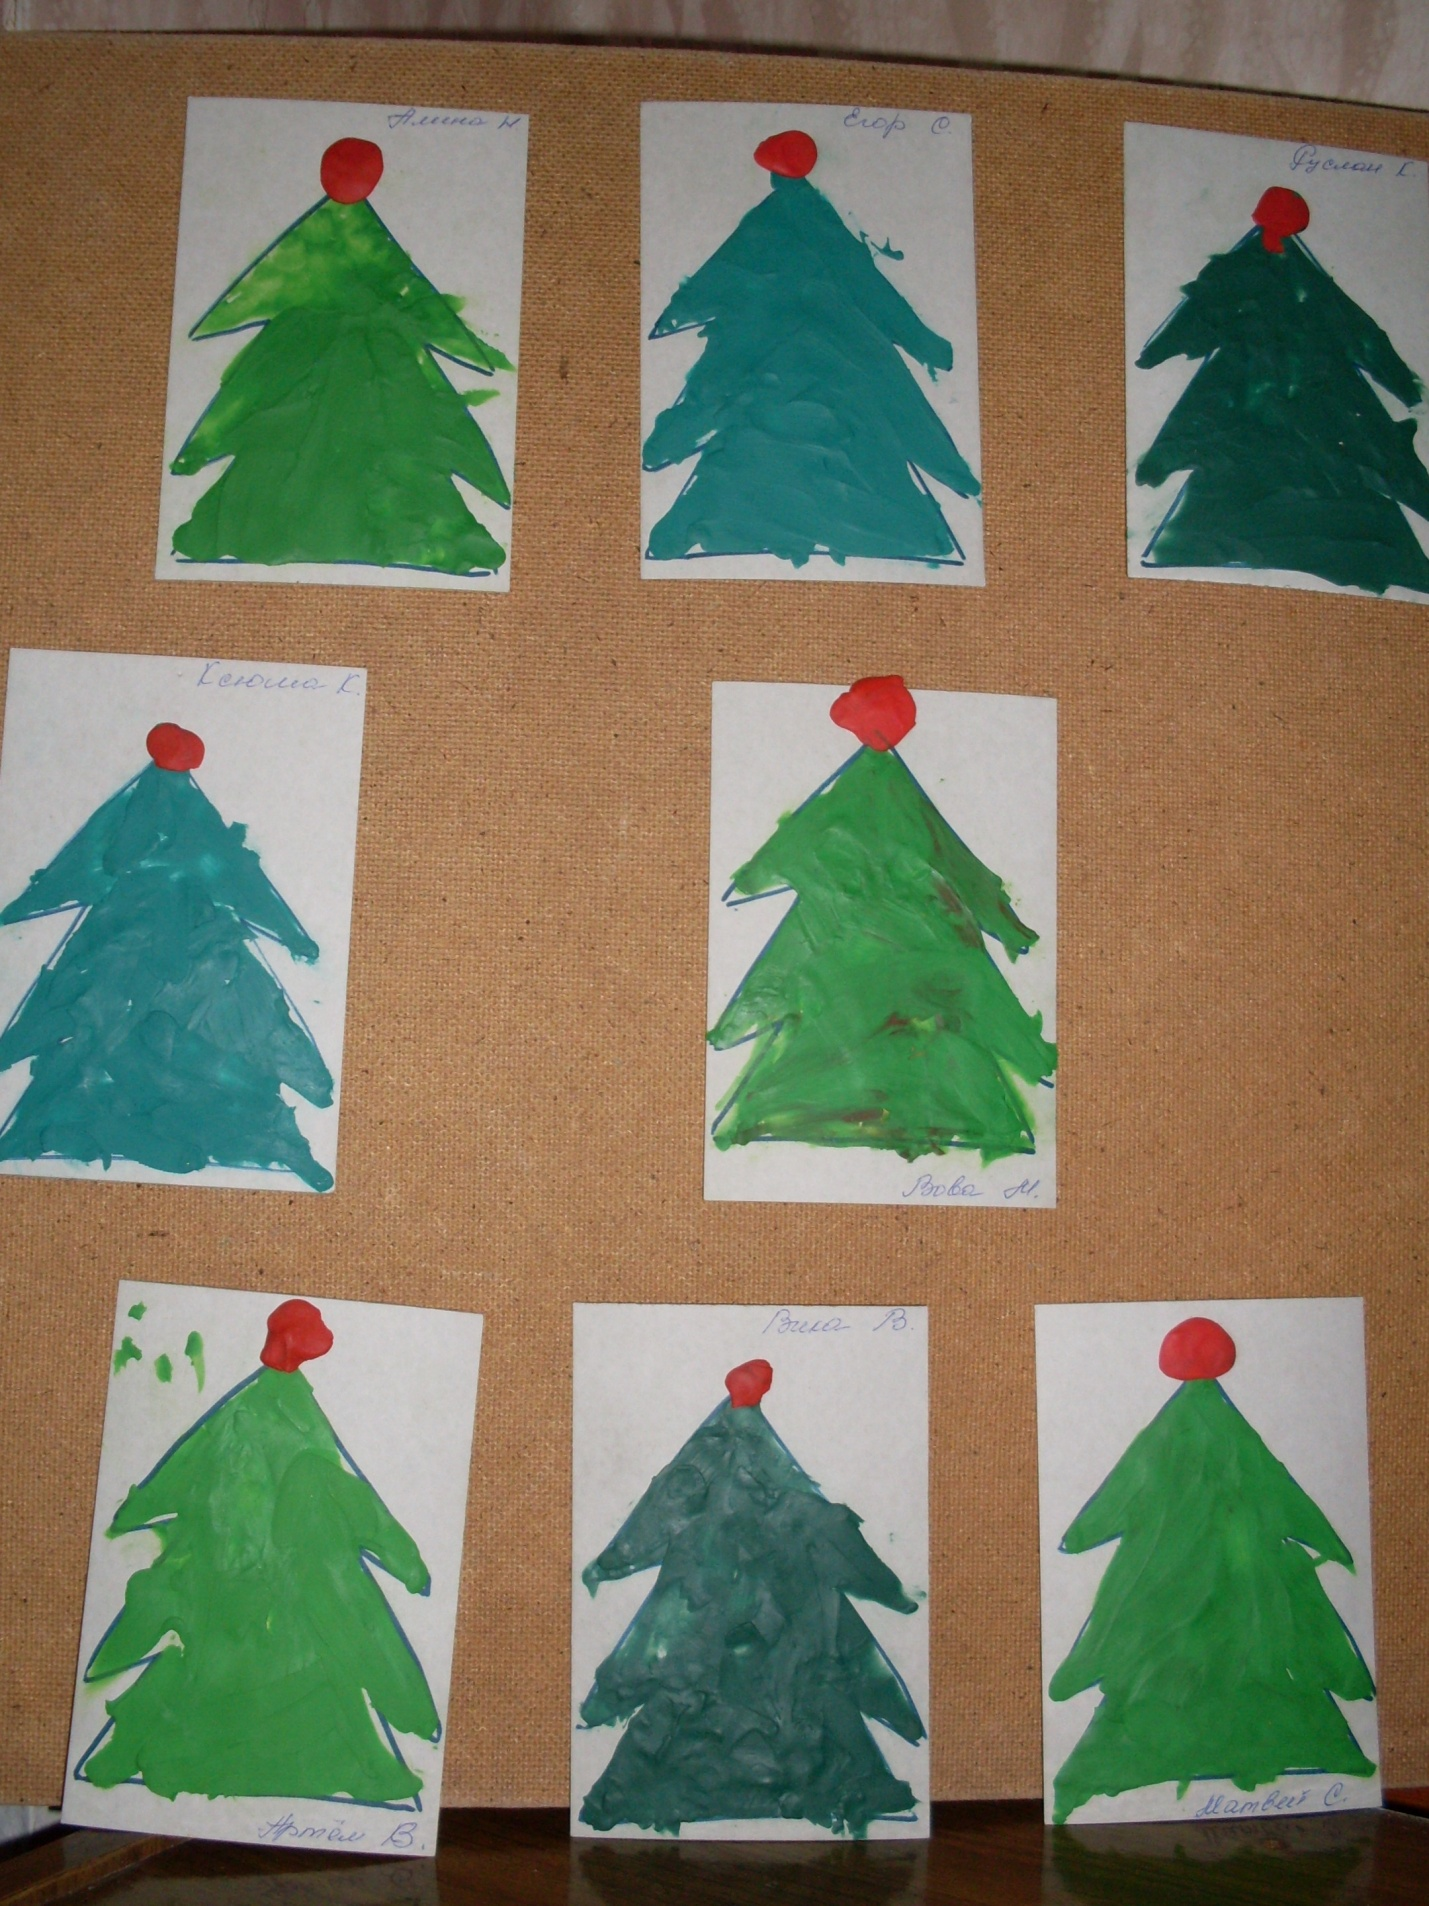 Алина Н
Егор С.
Руслан К.
Ксюша К.
Вова М.
Артём В.
Вика В.
Матвей С.